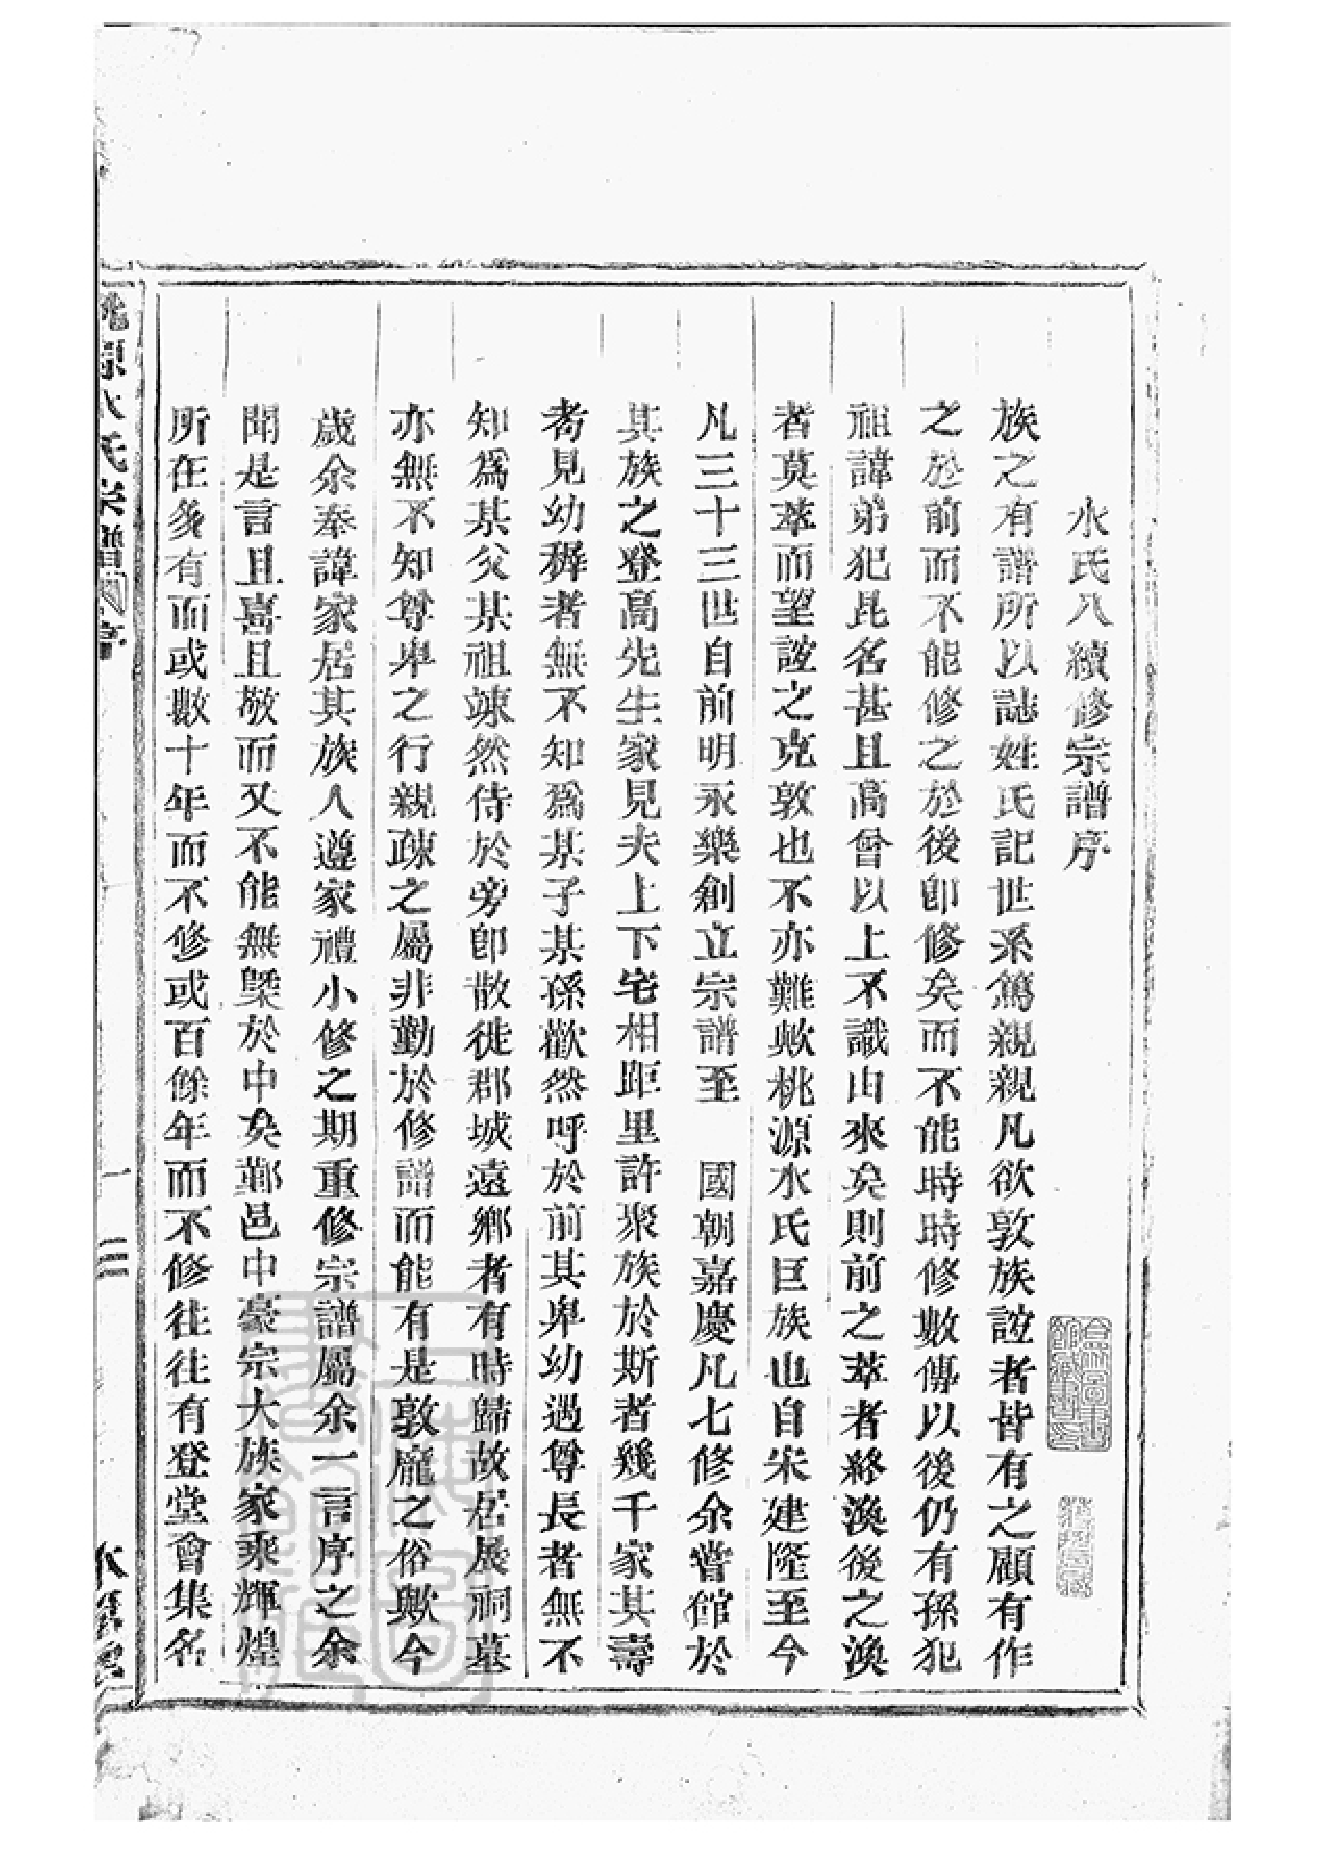 水氏八續修宗譜序
族之有譜所以誌姓氏記世系篤親親凡欲敦族誼者皆有之顧有作
之於前而不能修之於後卽修矣而不能時時修數傳以後仍有孫犯
祖諱弟犯昆名甚且高曾以上不識由來矣則前之萃者終渙後之渙
者莫萃而望誼之克敦也不亦難歟桃源水氏巨族也自宋建隆至今
凡三十三世自前明永樂創立宗譜至 國朝嘉慶凡七修余嘗館於
其族之登高先生家見夫上下宅相距里許聚族於斯者幾千家其壽
耉見幼穉者無不知爲某子某孫歡然呼於前其卑幼遇尊長者無不
知爲某父某祖竦然侍於旁卽散徙郡城遠鄉者有時歸故居展祠墓
亦無不知尊卑之行親疎之屬非勤於修譜而能有是敦龐之俗歟今
歲余奉諱家居其族人遵家禮小修之期重修宗譜屬余一言序之余
聞是言且喜且敬而又不能無槩於中矣鄞邑中豪宗大族家乘輝煌
所在多有而或數十年而不修或百餘年而不修往往有登堂會集名
桃源水氏宗譜 序
一
二